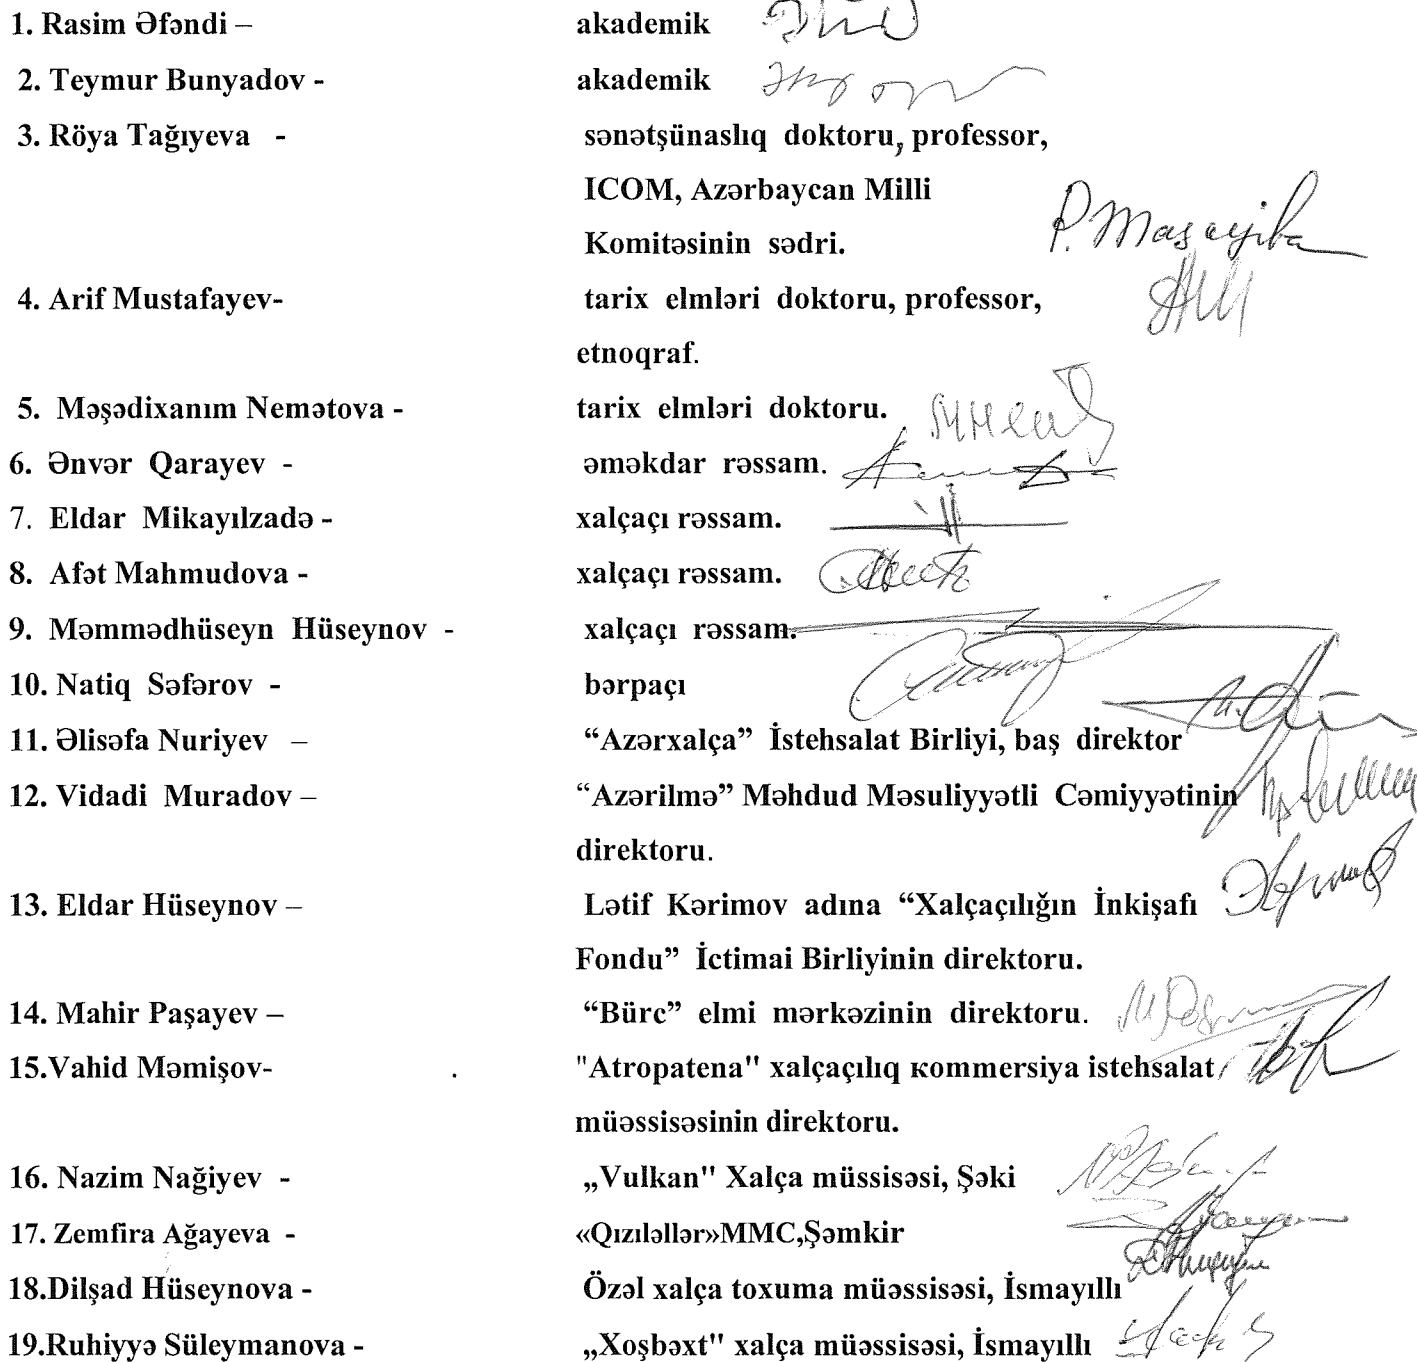 1. Rasim Əfəndi – akademik
2. Teymur Bunyadov - akademik
3. Röya Tağıyeva - sənətşünaslıq doktoru, professor,
ICOM, Azərbaycan Milli
Komitəsinin sədri.
4. Arif Mustafayev- tarix elmləri doktoru, professor,
etnoqraf.
5. Məşədixanım Nemətova - tarix elmləri doktoru.
6. Ənvər Qarayev - əməkdar rəssam.
7. Eldar Mikayılzadə - xalçaçı rəssam.
8. Afət Mahmudova - xalçaçı rəssam.
9. Məmmədhüseyn Hüseynov - xalçaçı rəssam.
10. Natiq Səfərov - bərpaçı
11. Əlisəfa Nuriyev – “Azərxalça” İstehsalat Birliyi, baş direktor
12. Vidadi Muradov – “Azərilmə” Məhdud Məsuliyyətli Cəmiyyətinin
direktoru.
13. Eldar Hüseynov – Lətif Kərimov adına “Xalçaçılığın İnkişafı
Fondu” İctimai Birliyinin direktoru.
14. Mahir Paşayev – “Bürc” elmi mərkəzinin direktoru.
15.Vahid Məmişov- "Atropatena" xalçaçılıq кommersiya istehsalat
müəssisəsinin direktoru.
16. Nazim Nağiyev - „Vulkan" Xalça müssisəsi, Şəki
17. Zemfira Ağayeva - «Qızıləllər»MMC,Şəmkir
18.Dilşad Hüseynova - Özəl xalça toxuma müəssisəsi, İsmayıllı
19.Ruhiyyə Süleymanova - „Xoşbəxt" xalça müəssisəsi, İsmayıllı